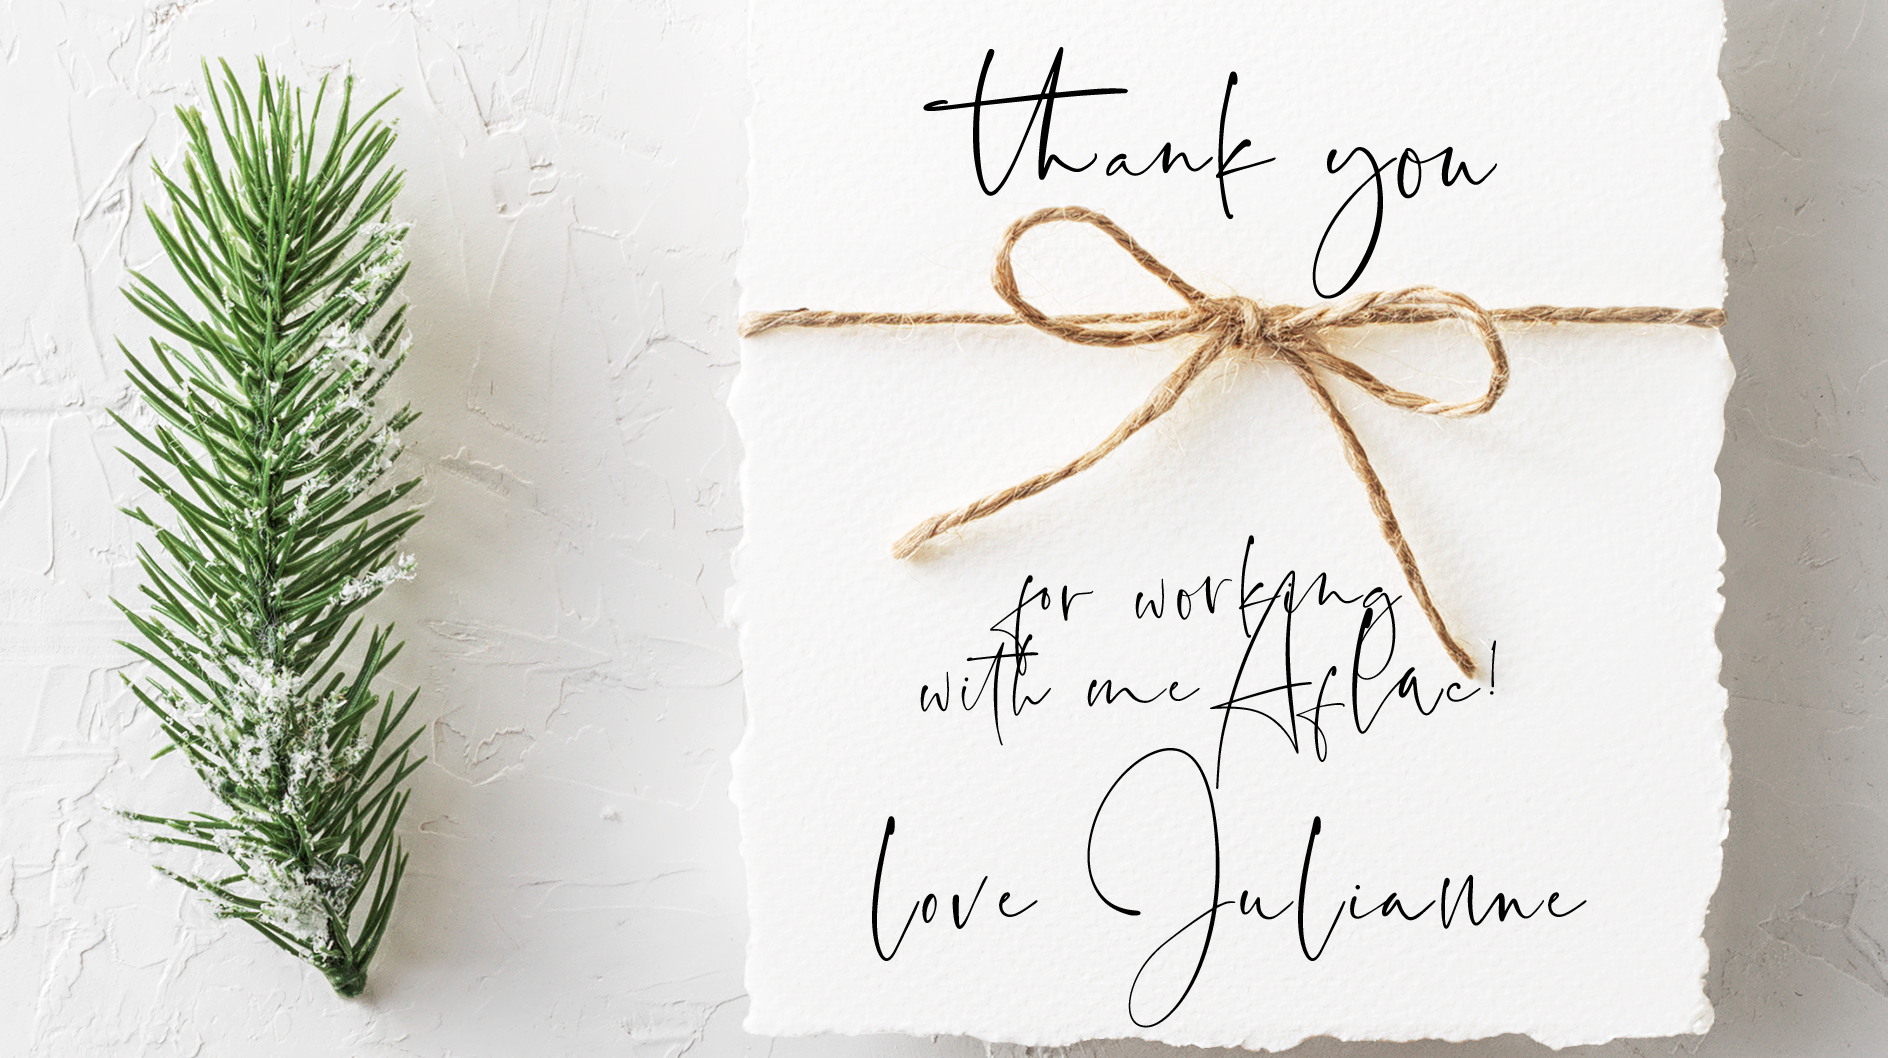 thank you
for working
with me Aflac!
love Julianne